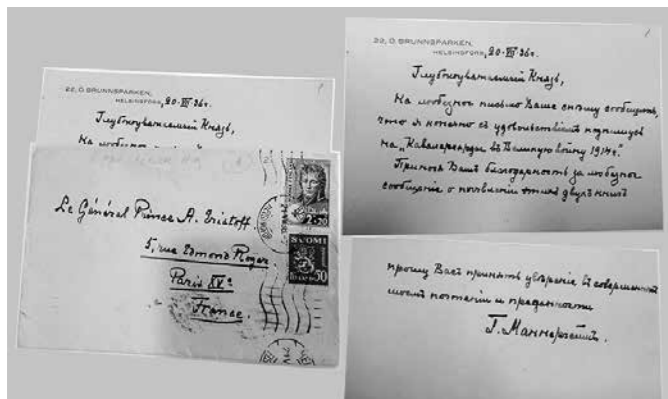 22, Ö. BRUNNSPARKEN,
HELSINGFORS, 20-VII-36г.
Глубокоуважаемый Князь,
На любезное
Le Général Prince A. Eristoff
5, rue Edmond Roger
Paris XVe
France.
SUOMI
FINLAND 50
22, Ö. BRUNNSPARKEN,
HELSINGFORS, 20-VII-36г.
Глубокоуважаемый Князь,
На любезное письмо Ваше спѣшу сообщить,
что я конечно съ удовольствіемъ подпишусь
на „Кавалергарды въ Великую войну 1914г."
Приношу Вамъ благодарность за любезное
сообщеніе о появленіи этихъ двухъ книгъ
прошу Васъ принять увѣреніе въ совершенномъ
моемъ почтеніи и преданности
Г. Маннергеймъ.